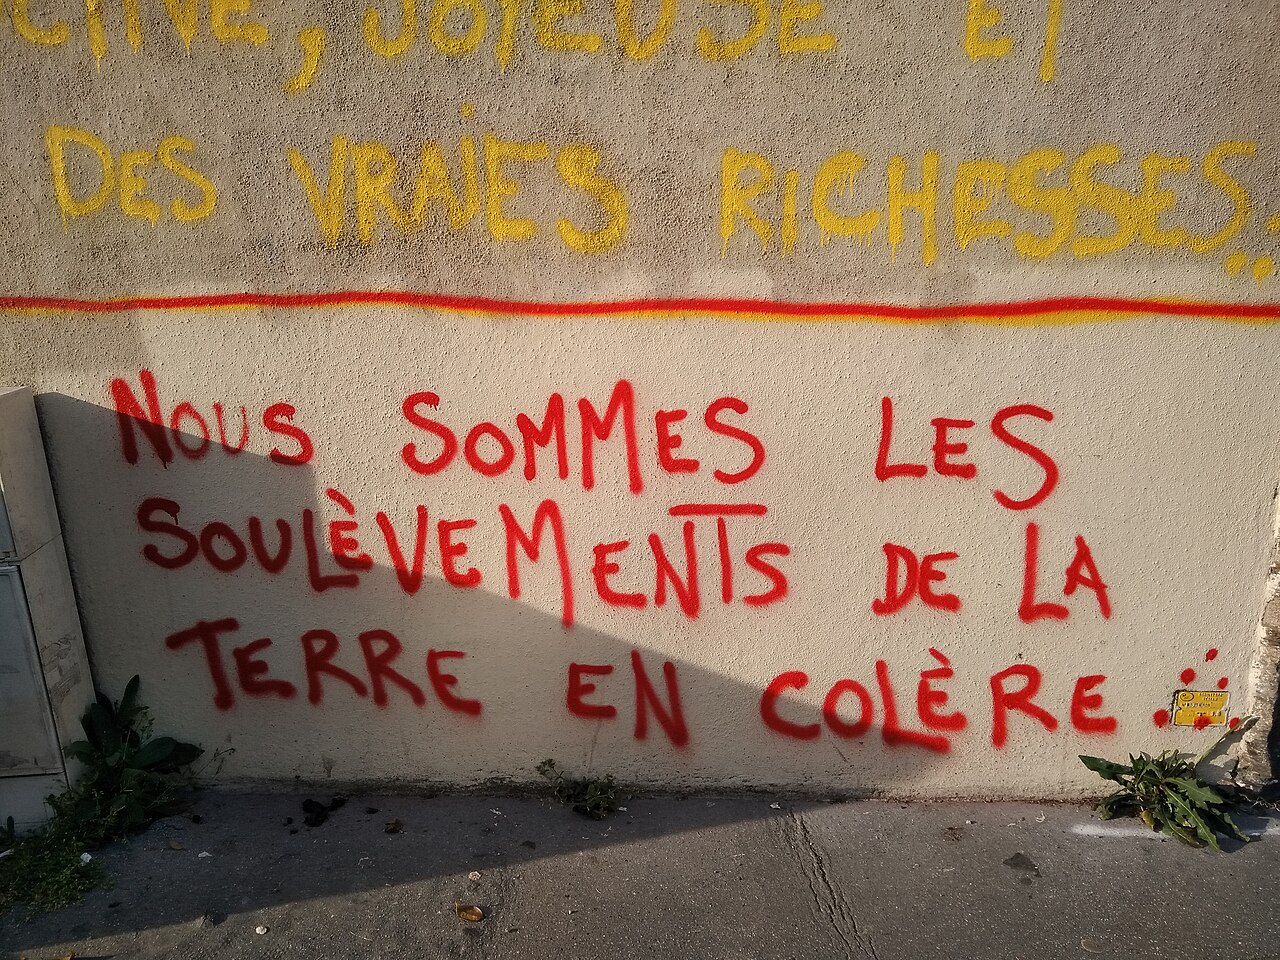 , JOYEUSE ET
DES VRAIES RICHESSES...
NOUS SOMMES LES
SOULÈVEMENTS DE LA
TERRE EN COLÈRE